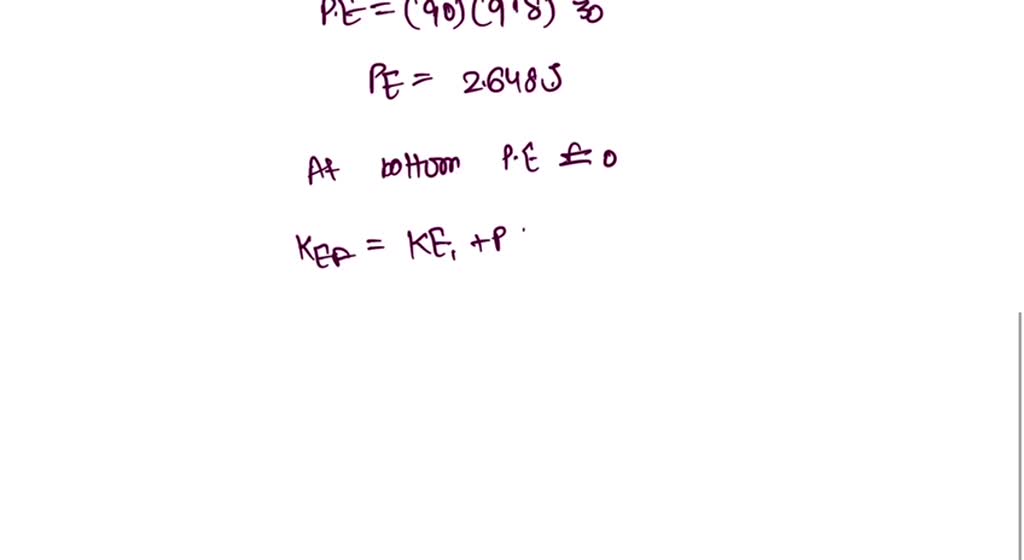 P.E = (90)(9.8) 30
PE = 2.648J
At bottom P.E = 0
KEA = KE, + P